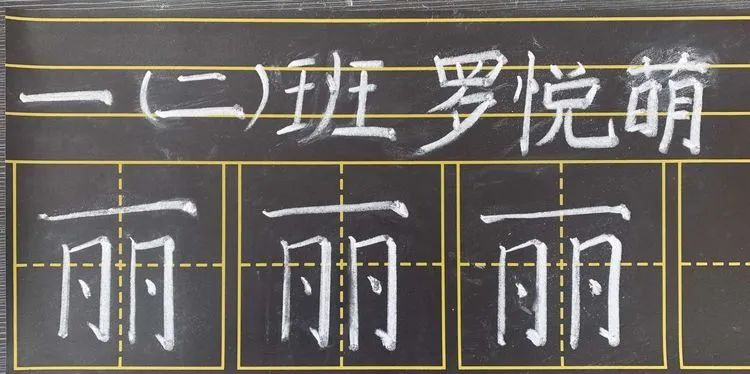 一(二)班 罗悦萌
丽 丽 丽